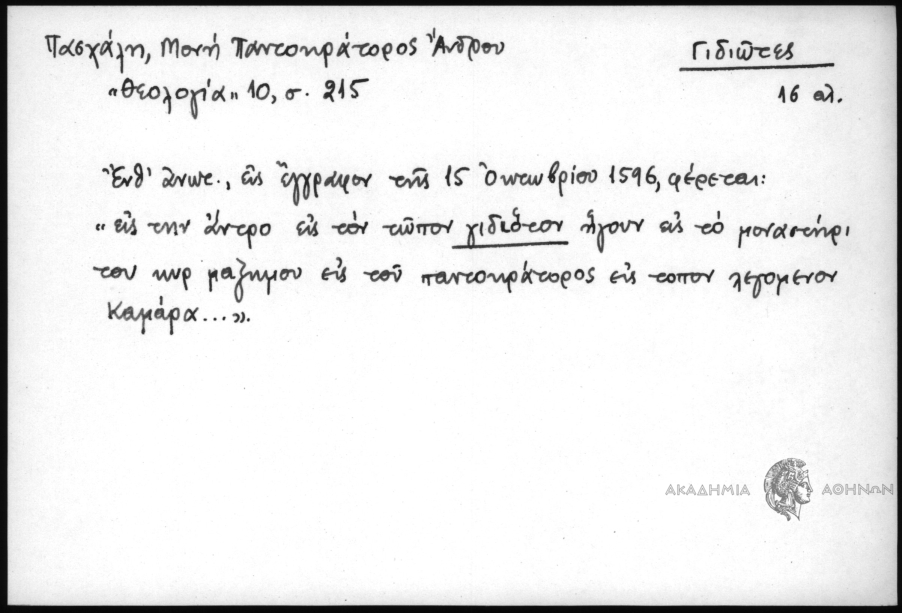 Πασχάλη, Μονή Παντοκράτορος Ἄνδρου
Γιδιῶτες
"Θεολογία" 10, σ. 215
16 αι.
Ἔνθ' ἀνωτ., εἰς ἔγγραφον τῆς 15 Ὀκτωβρίου 1596, φέρεται:
"εἰς την ἄντρο εἰς τὸν τῶπον γιδιότον ἤγουν εἰς τὸ μοναστήρι
του κυρ μαξημου εἰς τοῦ παντοκράτορος εἰς τοπον λεγομενον
Καμάρα...".
ΑΚΑΔΗΜΙΑ ΑΘΗΝΩΝ